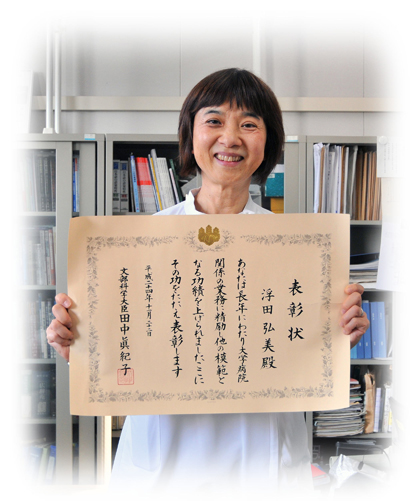 表彰状
浮田弘美殿
あなたは長年にわたり大学病院
関係の業務に精励し他の模範と
なる功績を上げられましたここに
その功をたたえ表彰します
平成二十四年十一月二十二日
文部科学大臣田中眞紀子